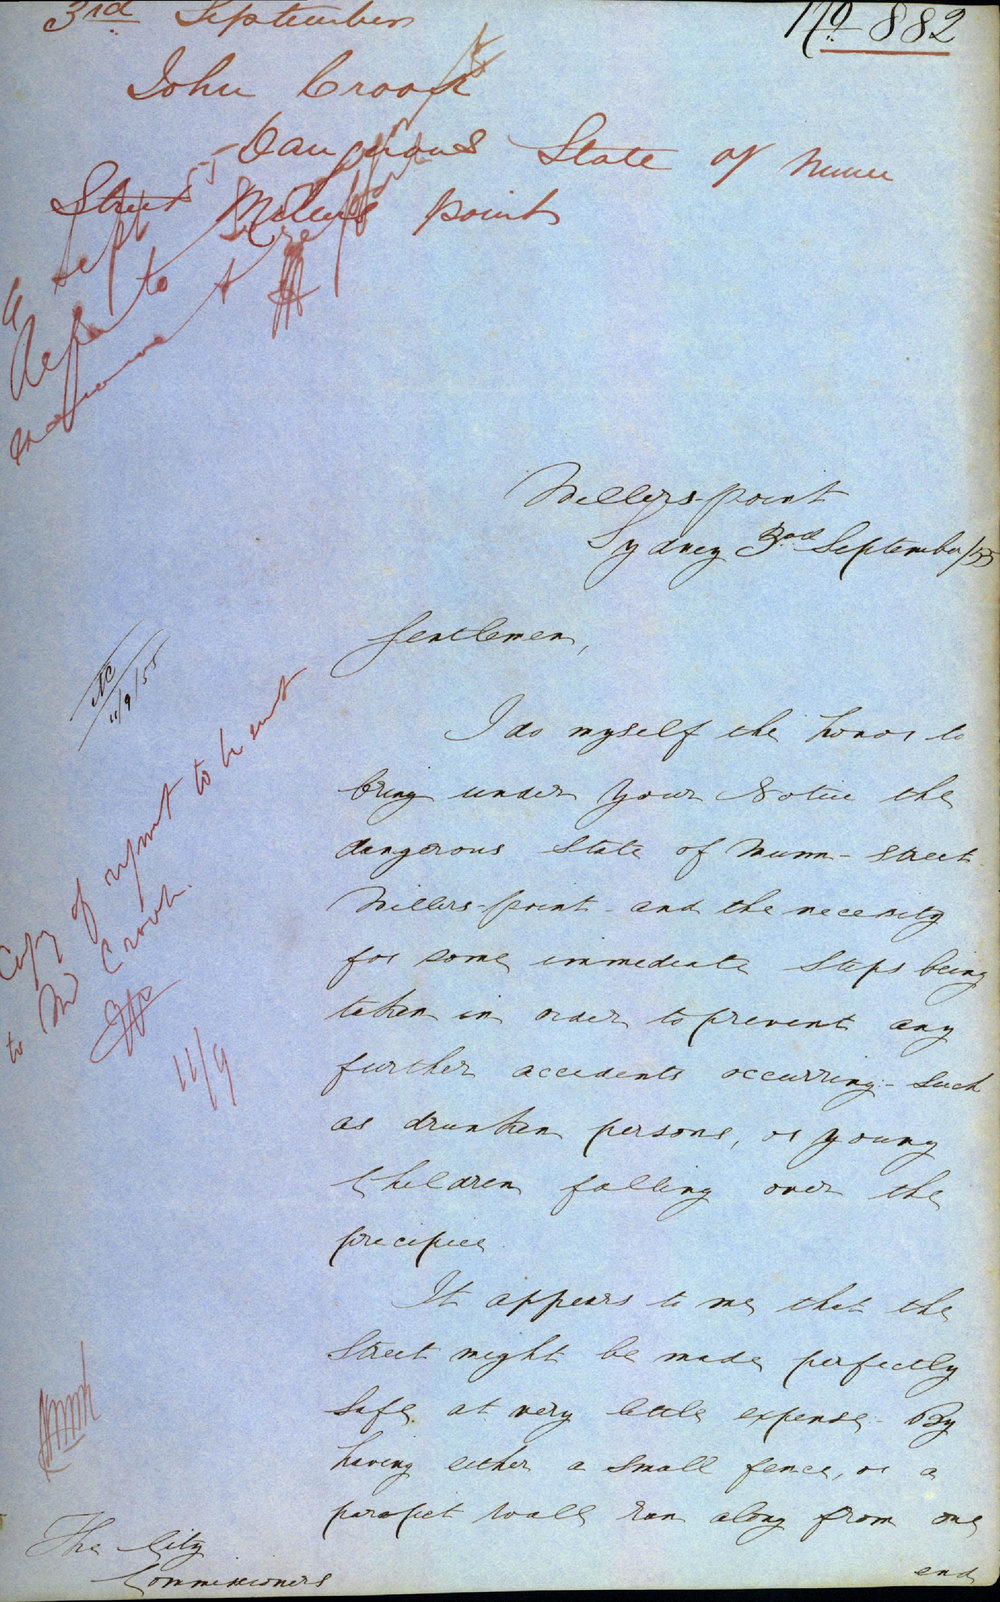 3rd September
No 882
John Crook
Dangerous State of Munn
Street Millers point
Sept 55
Refer to
& report
Millers-point
Sydney 3rd September/55
Gentlemen,
I do myself the honor to
bring under your Notice the
dangerous State of Munn-Street
Millers-point - and the necessity
for some immediate Steps being
taken in order to prevent any
further accidents occurring - such
as drunken persons, or young
Children falling over the
precipice
It appears to me that the
Street might be made perfectly
Safe at very little expense - By
having either a small fence, or a
parapet wall ran along from one
end
11/9/55
Copy of report to be sent
to Mr Crook.
11/9
The City
Commissioners